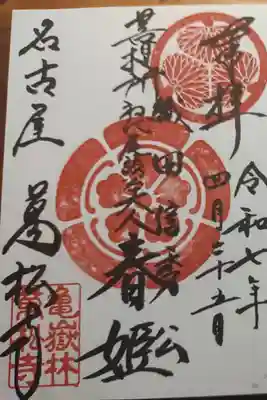 奉拝
令和七年
四月二十五日
織田信秀公
菩提所
夫人 春姫
名古屋 萬松寺
亀嶽林
萬松寺